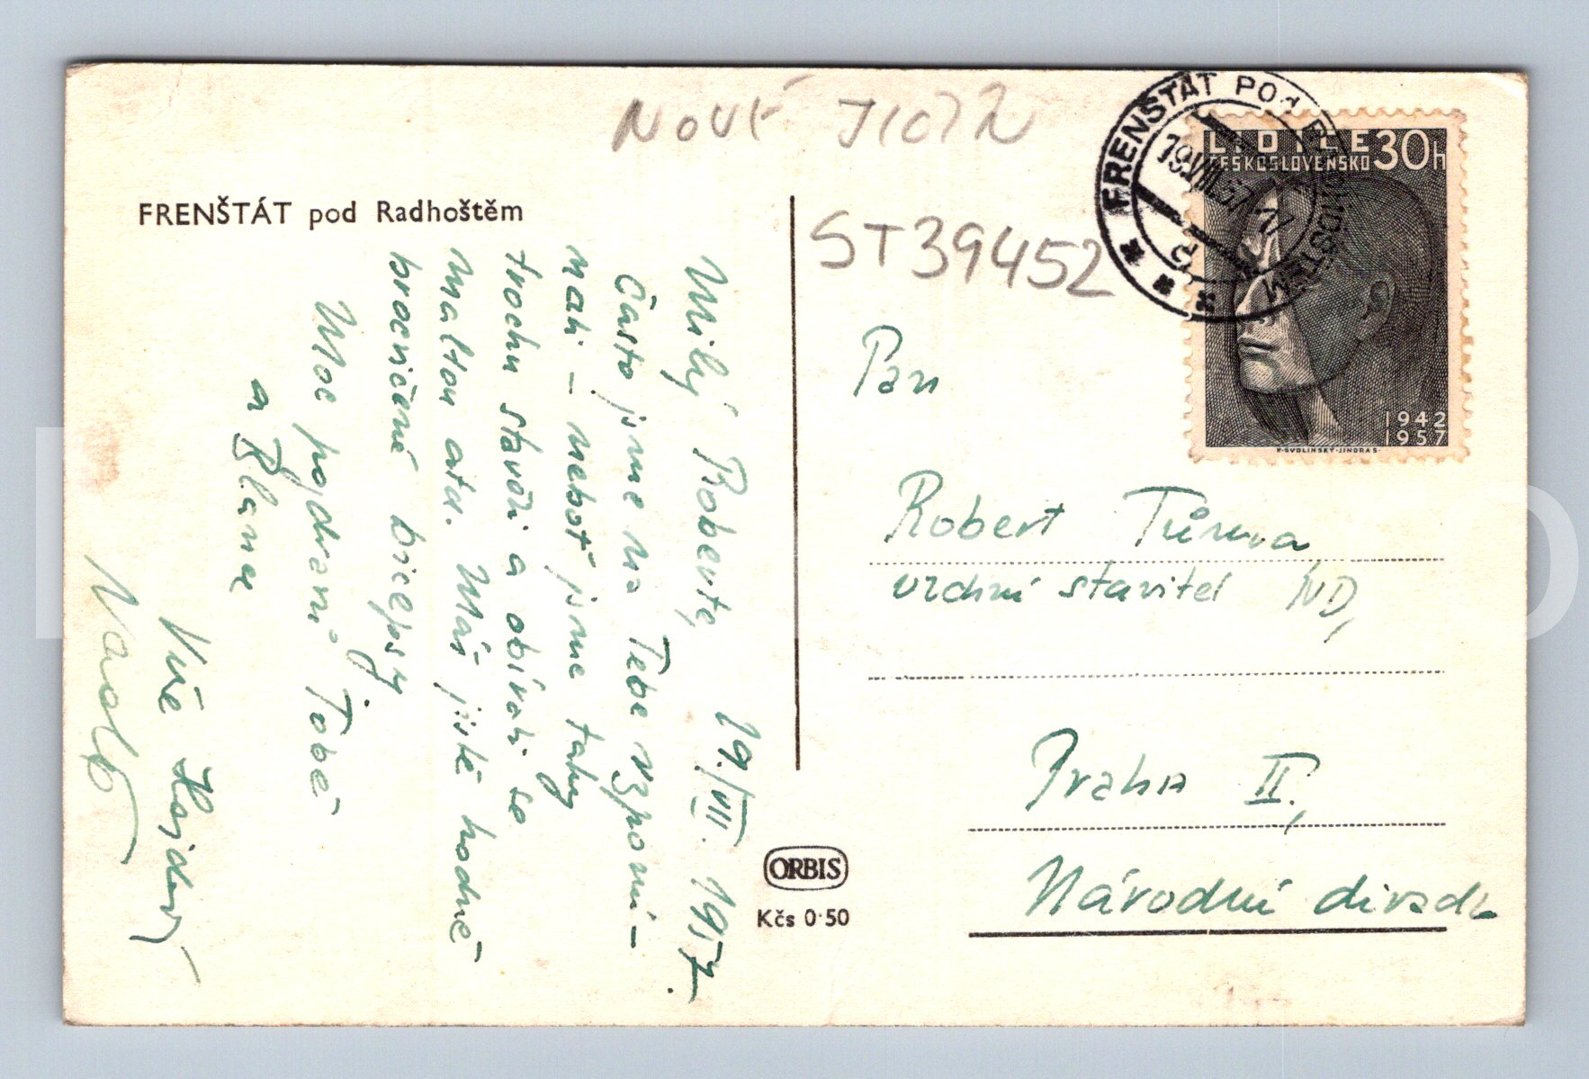 NOVÝ JIČÍN
FRENŠTÁT pod Radhoštěm
ST39452
FRENŠTÁT POD RADHOŠTĚM
19.VIII.57-11
LIDICE
ČESKOSLOVENSKO 30h
1942
1957
K·SVOLINSKÝ·JINDRA S·
19./VII. 1957.
Milý Roberte,
často jsme na Tebe vzpomí-
nali – neboť jsme taky
trochu stavěli a obírali se
maltou atd. Máš jistě hodně
procvičené bicepsy
Moc pozdravů Tobě
a Blance
Vaše
Pan
Robert Tůma
vrchní stavitel ND,
Praha II.,
Národní divadlo
ORBIS
Kčs 0·50